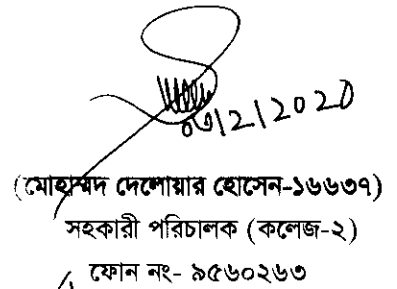 ০৩|2|2020
(মোহাম্মদ দেলোয়ার হোসেন-১৬৬৩৭)
সহকারী পরিচালক (কলেজ-২)
ফোন নং- ৯৫৬০২৬৩